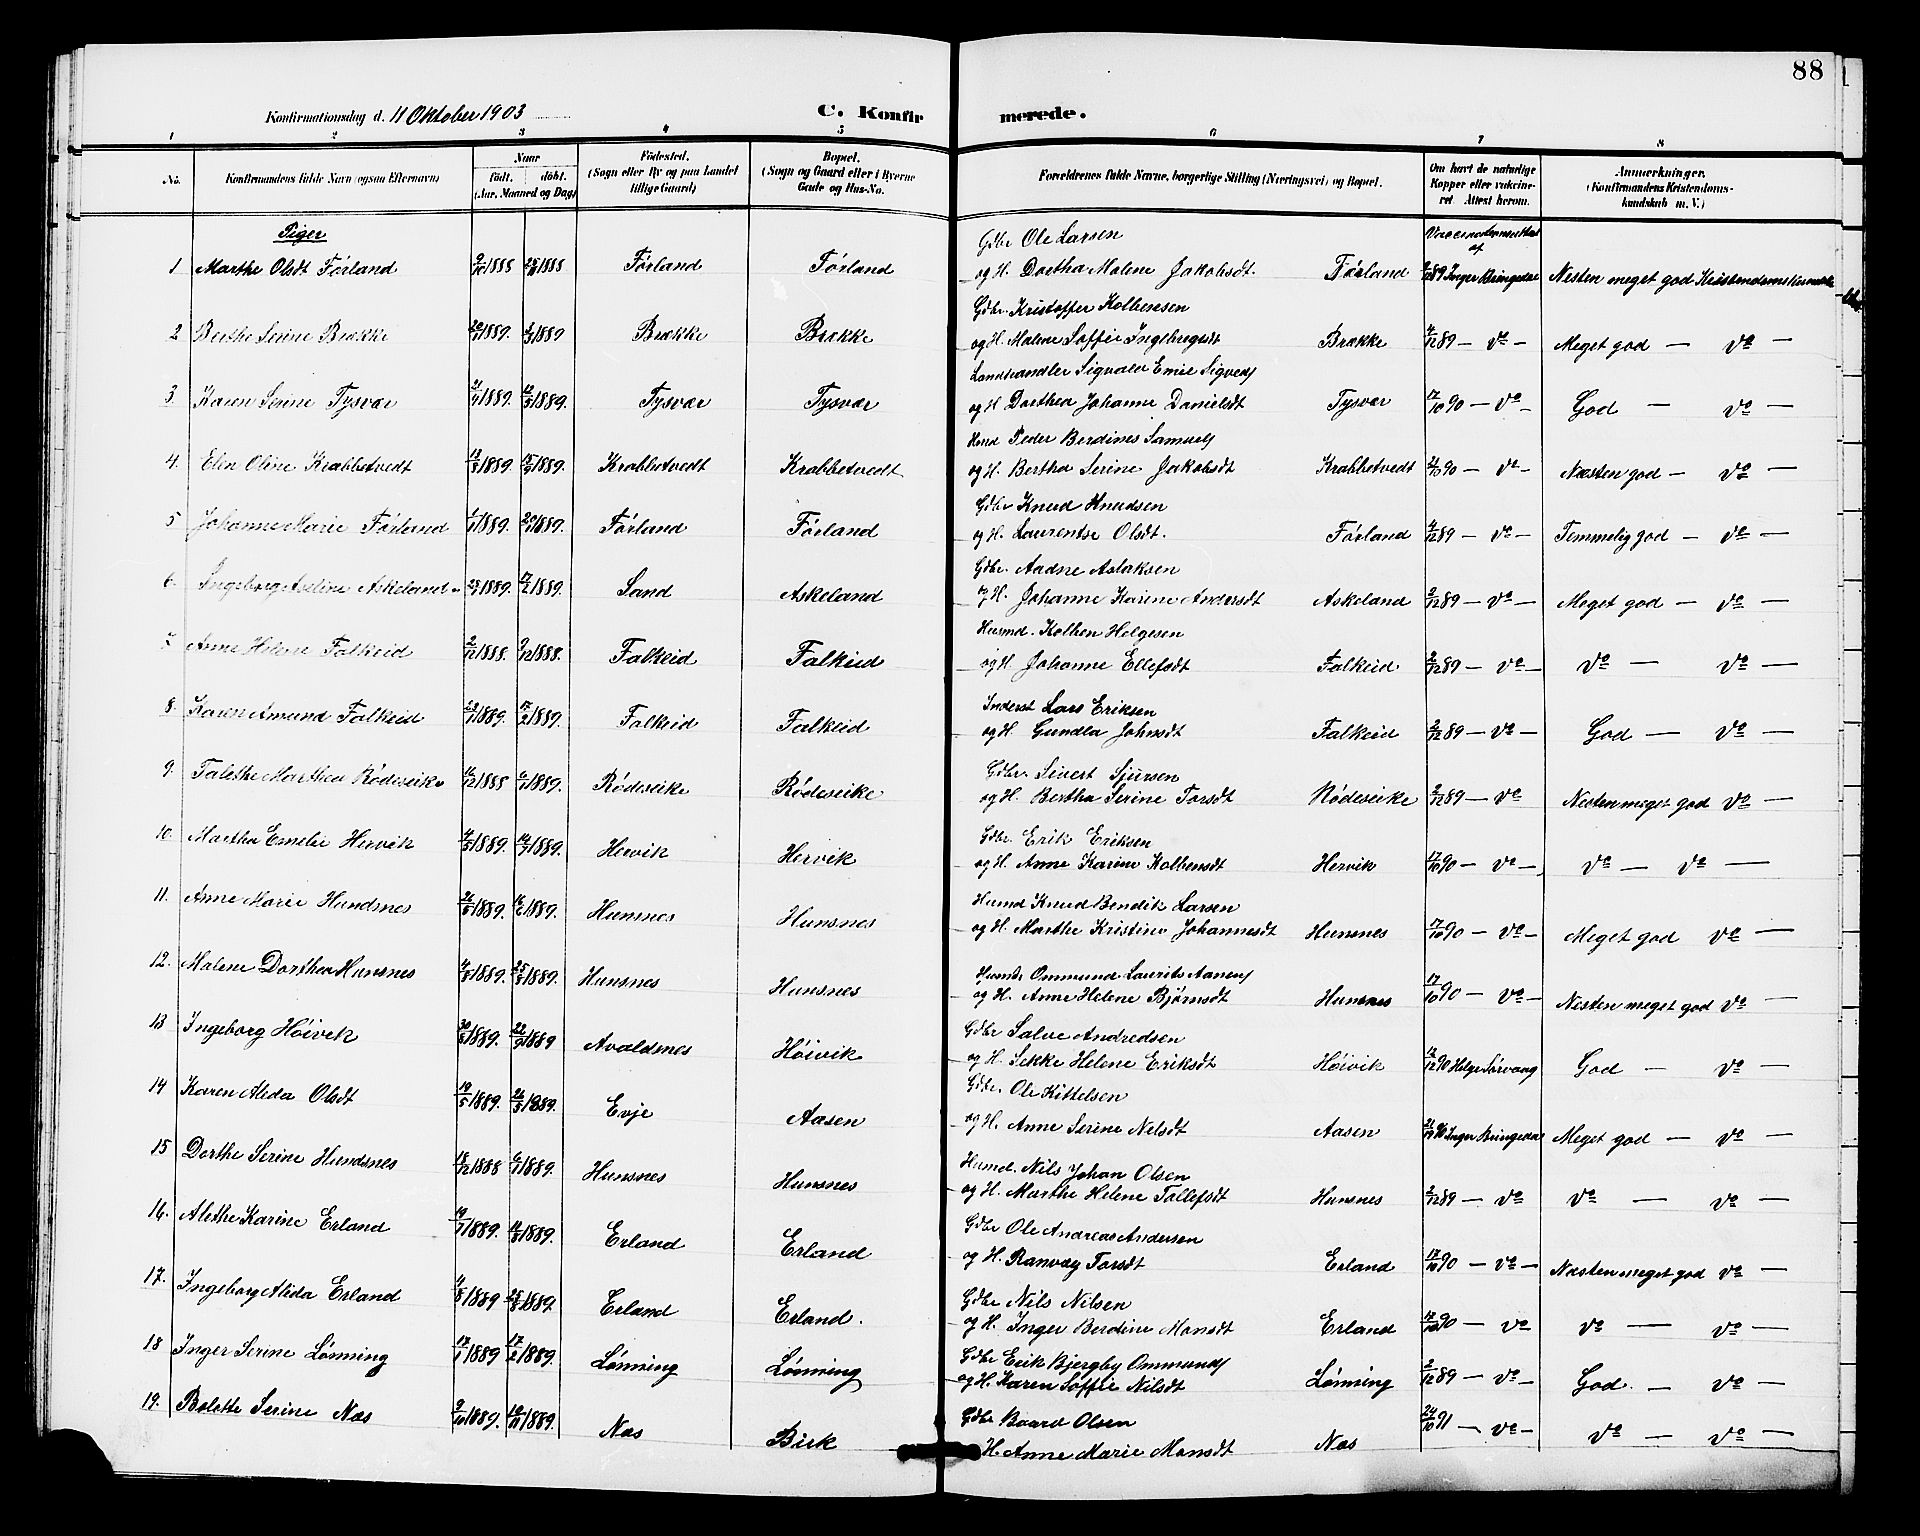 88
Konfirmationsdag d. 11 Oktober 1903
C. Konfir merede.
1 2 3 4 5 6 7 8
No. Konfirmandens fulde Navn (ogsaa Efternavn) Naar født. døbt. (Aar, Maaned og Dag) Fødested. (Sogn eller By og paa Landet tillige Gaard) Bopæl. (Sogn og Gaard eller i Byerne Gade og Hus-No. Forældrenes fulde Navne, borgerlige Stilling (Næringsvei) og Bopæl. Om havt de naturlige Kopper eller vakcineret Attest herom. Anmærkninger. (Konfirmandens Kristendomskundskab m. V.)
Piger
Gdbr Ole Larsen
1 Marthe Olsdt Førland 1888 1888 Førland Førland og H. Dortha Malene Jakobsdt. Førland 89 Inger Bringedal Nesten meget god Kristendomskundsk
Gdbr. Kristoffer Kolbensen
2 Berthe Serine Brække 1889 1889 Brække Brække og H. Malene Soffie Ingebregsdt Brække 2/12 89 – do – Meget god – do –
Landhandler Sigvald Emil Sigveds
3 Karen Serine Tysvær 1889. 1889. Tysvær Tysvær og H Dorthea Johanne Danielsdt Tysvær 17/10 90 – do – God – do –
Husmd Peder Berdines Samuels
4. Elen Oline Krabbetvedt 1889. 1889. Krabbetvedt Krabbetvedt og H. Bertha Serine Jakobsdt Krabbetvedt 90 – do – Næsten god – do –
Gdbr Knud Knudsen
5 Johanne Marie Førland 1889. 1889. Førland Førland og H. Laurentse Olsdt. Førland 89 – do – Temmelig god – do –
Gdbr. Aadne Aslaksen
6. Ingeborg Aseline Askeland 1889. 17/2 1889. Sand Askeland og H. Johanne Karine Andersdt Askeland 2/12 89 – do – Meget god – do –
Husmd. Kolben Helgesen
7. Anne Helene Falkeid 2/12 1888. 9/12 1888. Falkeid Falkeid og H. Johanne Ellefsdt Falkeid 2/12 89 – do – do – do –
Inderst Lars Eriksen
8. Karen Amund Falkeid 1889. 17/2 1889. Falkeid Falkeid og H. Gundla Johnsdt Falkeid 2/12 89 – do – God – do –
Gdbr. Sivert Sjursen
9. Talethe Marthea Rødeseike 1888 6/1 1889. Rødeseike Rødeseike og H. Bertha Serine Torsdt Rødeseike 2/12 89 – do Nesten meget god do –
Gdbr. Erik Eriksen
10. Martha Emelie Hervik 1889. 1889. Hervik Hervik og H. Anne Karine Kolbensdt Hervik 17/10 90 – do – do – do –
Husmd Knud Bendik Larsen
11. Anne Marie Hundsnes 1889. 1889. Hunsnes Hunsnes og H. Marthe Kristine Johannesdt Hunsnes 17/10 90 – do – Meget god do –
Husmd. Ommund Laurits Aanens
12. Malene Dorthea Hunsnes 1889. 1889. Hunsnes Hunsnes og H. Anne Helene Bjørnsdt Hunsnes 17/10 90 – do – Nesten meget god do –
Gdbr Salve Andredsen
13 Ingeborg Høivik 1889. 1889 Avaldsnes Høivik og H. Sekke Helene Eriksdt Høivik 90 Helge Sørvaag God – do –
Gdbr. Ole Kittelsen
14 Karen Alida Olsdt 19/5 1889. 26/5 1889. Evje Aasen og H. Anne Serine Nelsdt Aasen 90 Inger Bringedal Meget god – do –
Husmd. Nils Johan Olsen
15 Dorthe Serine Hundsnes 18/12 1888 6/1 1889. Hunsnes Hunsnes og H. Marthe Helene Tallefsdt Hunsnes 2/12 89 – do do – do –
Gdbr Ole Andreas Andersen
16. Alethe Karine Erland 1889. 1889. Erland Erland og H. Ranvæy Torsdt Erland 17/10 90 – do – Næsten meget god do –
Gdbr Nils Nilsen
17. Ingeborg Alida Erland 1889 1889. Erland Erland. og H. Inger Berdine Monsdt Erland 17/10 90 – do do – do –
Gdbr Erik Bjergby Ommunds
18 Inger Serine Lønning 17/1 1889 17/2 1889. Lønning Lønning og H. Karen Soffie Nilsdt Lønning 2/12 89 – do – God. – do –
Gdbr Baard Olsen
19. Bolette Serine Næs 9/10 1889. 1889. Næs Birk H. Anne Marie Monsdt Næs 24/10 91 – do – do – do –